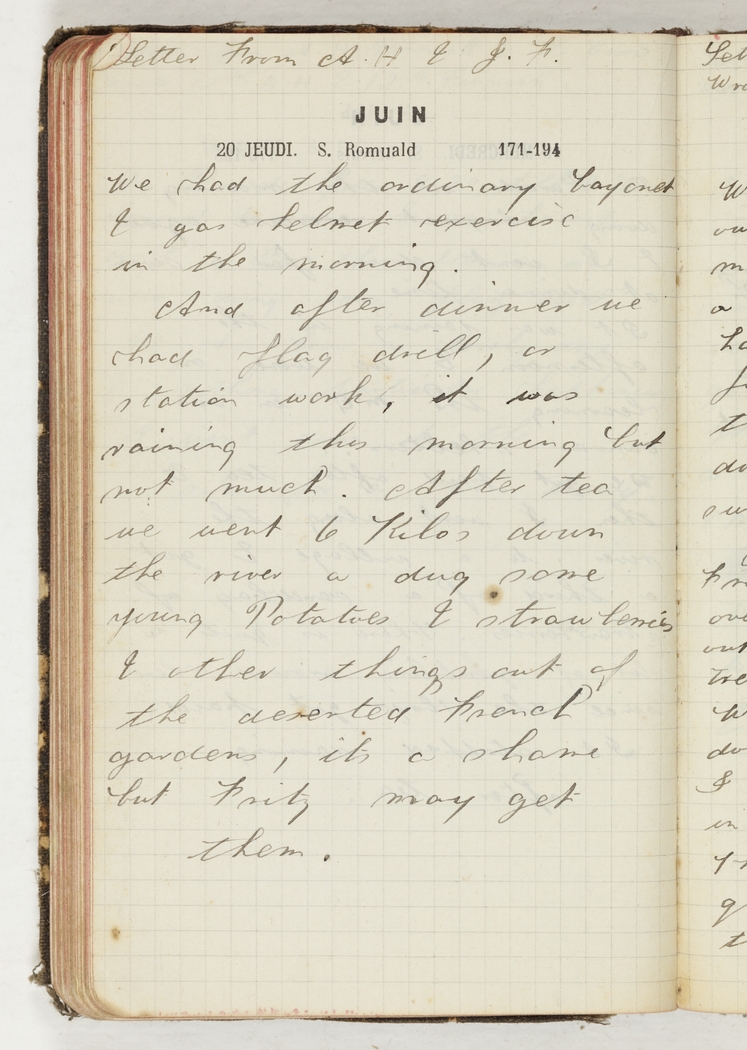 Letter From A. H & J. F.
JUIN
20 JEUDI. S. Romuald 171-194
We had the ordinary bayonet
& gas helmet exercise
in the morning.
And after dinner we
had flag drill, or
station work, it was
raining this morning but
not much. After tea
we went 6 Kilos down
the river a dug some
young Potatoes & strawberries
& other things out of
the deserted French
gardens, its a shame
but Fritz may get
them.